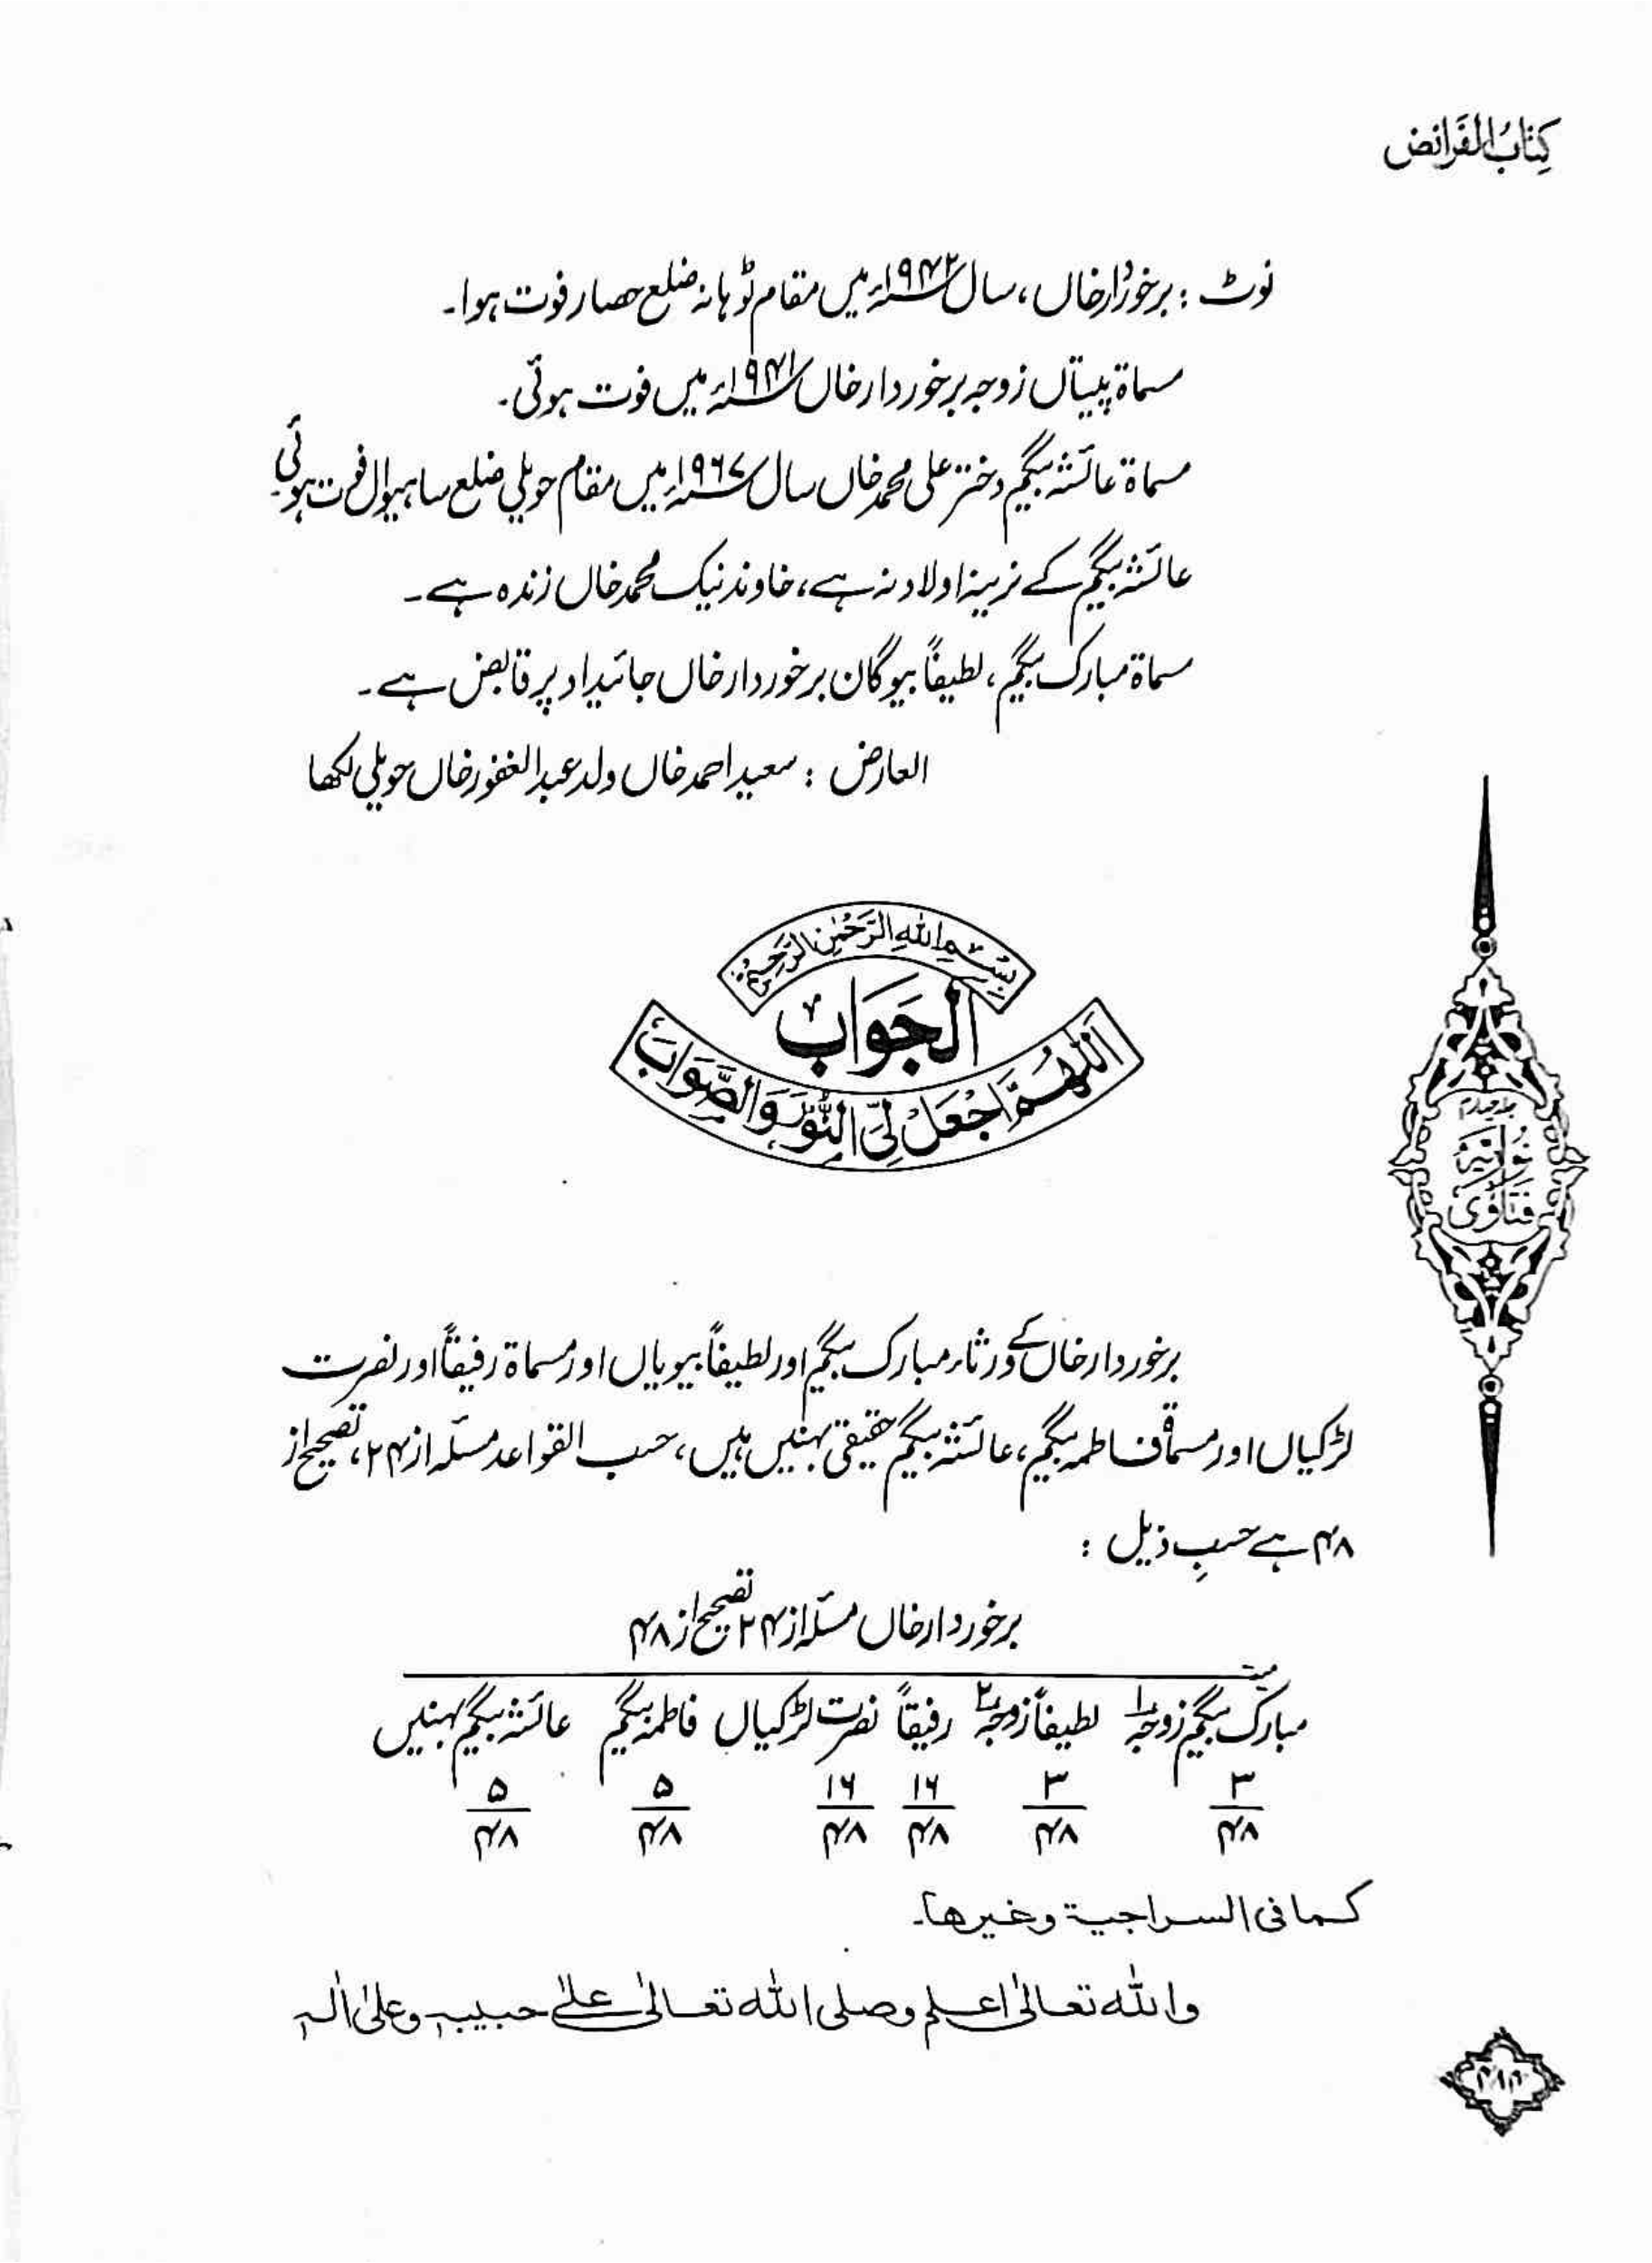 کِتَابُ الفَرائض
نوٹ : برخوردار خاں، سال ۱۹۴۲ء میں مقام ٹوہانہ ضلع حصار فوت ہوا۔
مسماۃ پیتاں زوجہ برخوردار خاں ۱۹۴۱ء میں فوت ہوئی۔
مسماۃ عائشہ بیگم دختر علی محمد خاں سال ۱۹۶۷ء میں مقام حویلی ضلع ساہیوال فوت ہوئی۔
عائشہ بیگم کے نرینہ اولاد نہ ہے، خاوند نیک محمد خاں زندہ ہے۔
مسماۃ مبارک بیگم، لطیفاً بیوگان برخوردار خاں جائیداد پر قابض ہے۔
العارض : سعید احمد خاں ولد عبد الغفور خاں حویلی لکھا
بِسْمِ اللهِ الرَّحْمٰنِ الرَّحِيْمِ
الجَوَاب
اَللّٰهُمَّ اجْعَلْ لِّیَ النُّوْرَ وَالصَّوَابَ
جلد چہارم
نُورِیَّہ
فتاوٰی
برخوردار خاں کے ورثاء مبارک بیگم اور لطیفاً بیویاں اور مسماۃ رفیقاً اور نصرت
لڑکیاں اور مسماۃ فاطمہ بیگم، عائشہ بیگم حقیقی بہنیں ہیں، حسب القواعد مسئلہ از ۲۴، تصحیح از
۴۸ ہے حسبِ ذیل :
برخوردار خاں مسئلہ از ۲۴ تصحیح از ۴۸
میت
مبارک بیگم زوجہ۱ لطیفاً زوجہ۲ رفیقاً نصرت لڑکیاں فاطمہ بیگم عائشہ بیگم بہنیں
۳ ۳ ۱۶ ۱۶ ۵ ۵
۴۸ ۴۸ ۴۸ ۴۸ ۴۸ ۴۸
كما فى السراجية وغيرها۔
والله تعالىٰ اعلم وصلى الله تعالىٰ علىٰ حبيبه وعلىٰ اٰله